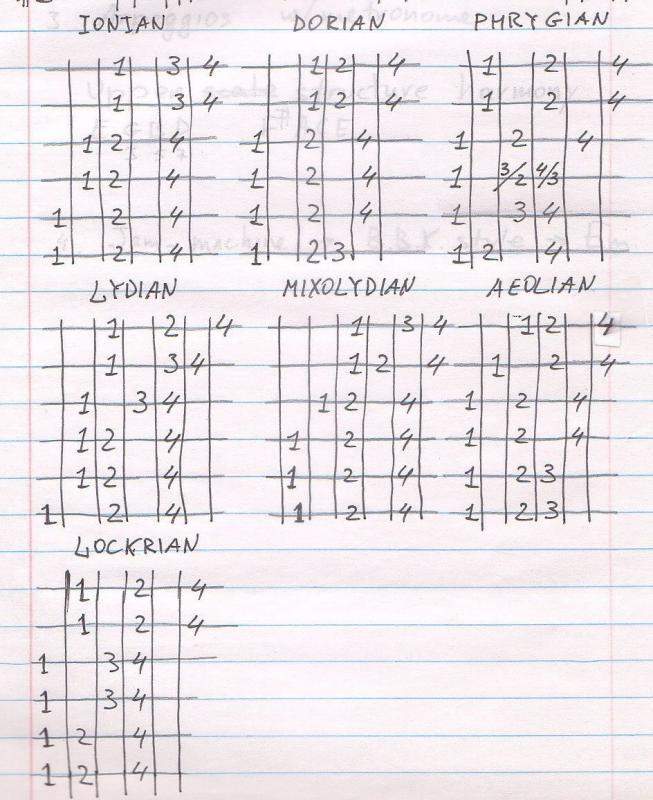 IONIAN
1 3 4
1 3 4
1 2 4
1 2 4
1 2 4
1 2 4
DORIAN
1 2 4
1 2 4
1 2 4
1 2 4
1 2 4
1 2 3
PHRYGIAN
1 2 4
1 2 4
1 2 4
1 3/2 4/3
1 3 4
1 2 4
LYDIAN
1 2 4
1 3 4
1 3 4
1 2 4
1 2 4
1 2 4
MIXOLYDIAN
1 3 4
1 2 4
1 2 4
1 2 4
1 2 4
1 2 4
AEOLIAN
1 2 4
1 2 4
1 2 4
1 2 4
1 2 3
1 2 3
LOCKRIAN
1 2 4
1 2 4
1 3 4
1 3 4
1 2 4
1 2 4